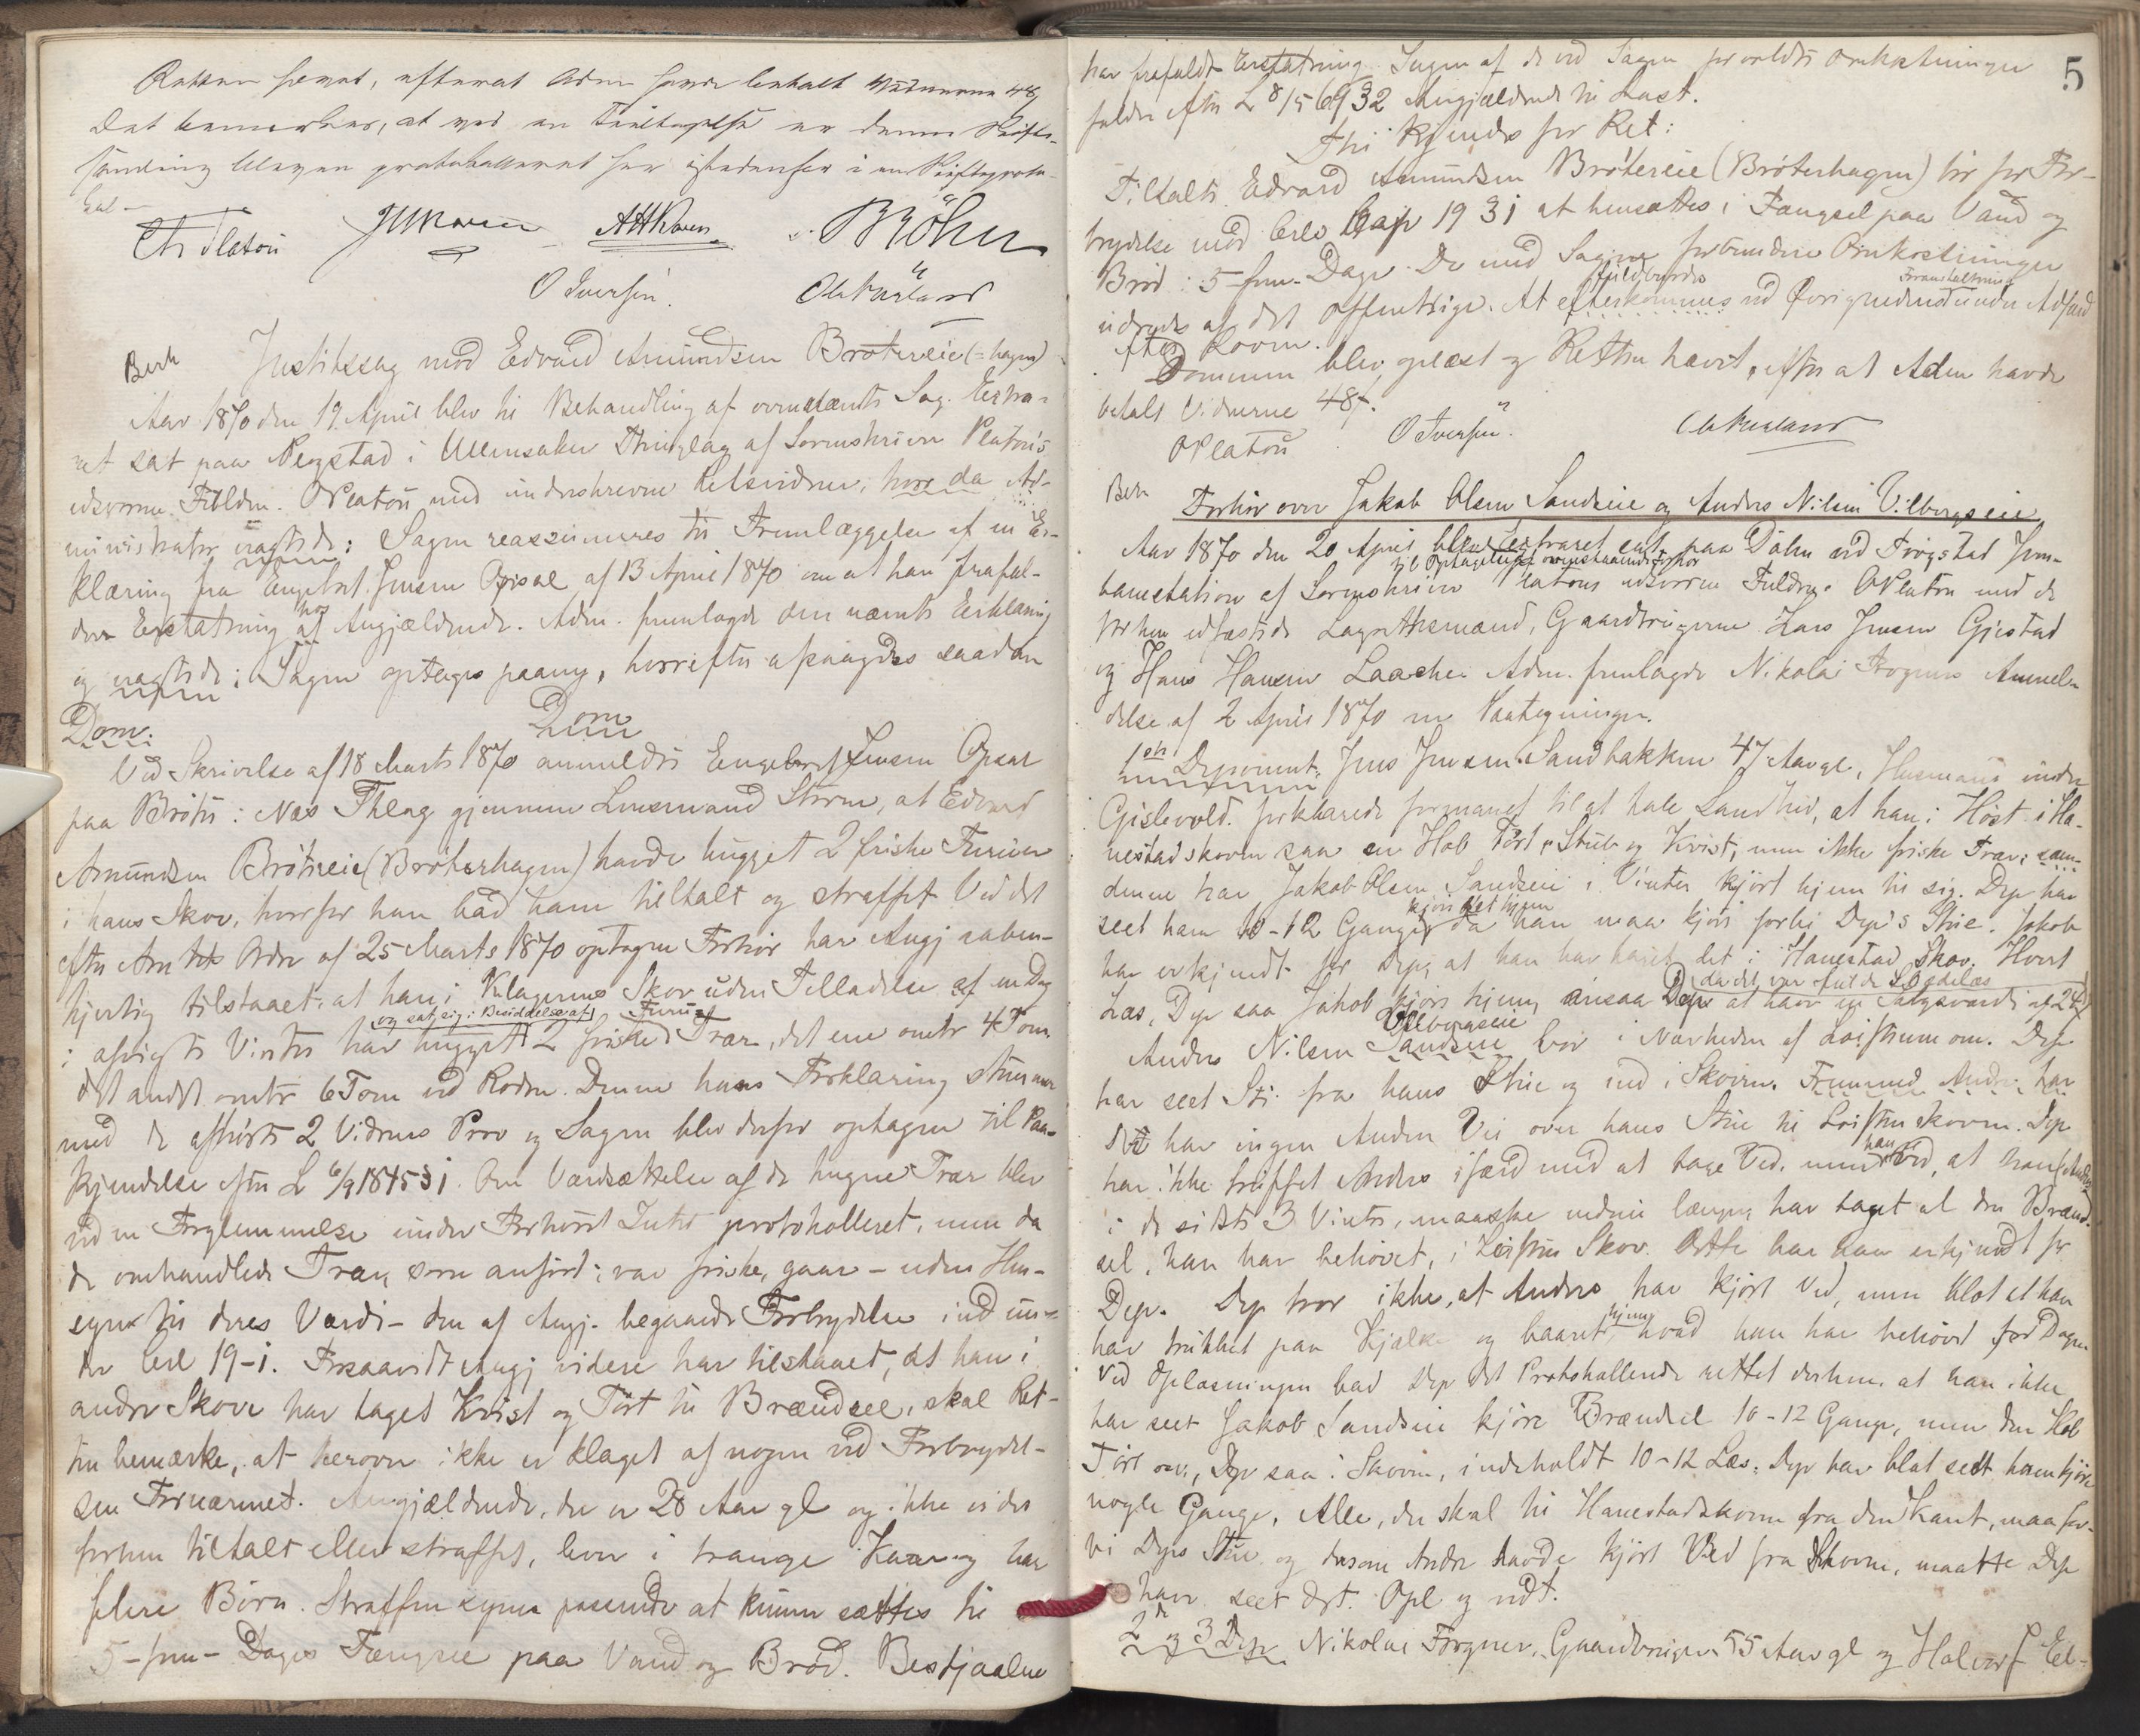 Retten hævet, efterat Adm havde betalt Vidnerne 48
Det bemærkes, at ved en Feiltagelse er denne Skifte-
samling bleven protokolleret her istedenfor i en Skifteproto-
kol -
Chr Platou O Iversen.
Ber Justitssag mod Edvard Amundsen Brötereie (= hagen)
Aar 1870 den 19 April blev til Behandling af ovennævnte Sag Extra-
ret sat paa i Ullensaker Thinglag af Sorenskriver Platou's
edsvorne Fuldm. O Platou med underskrevne Retsvidner; hvor da Ad-
ministrator: Sagen reassumeres til Fremlæggelse af en Er-
klæring fra Engebret Jensen Opsal af 13 April 1870 om at han frafal-
der Erstatning hos Angjældende. Adm. fremlagde den nævnte Erklæring
og; Sagen optages paany, hvorefter afsagdes saadan
Dom. Dom
Ved Skrivelse af 18 Marts 1870 anmeldte Engebret Jensen Opsal
paa Bröter i Næs Thlag gjennem Lensmand, at Edvard
Amundsen Brötereie (Bröterhagen) havde hugget 2 friske Furuer
i hans Skov, hvorfor han bad ham tiltalt og straffet. Ved det
efter Amtets Ordre af 25 Marts 1870 optagne Forhör har Angj uden-
tilstaaet: at han i Klagerens Skov uden Tilladelse af en Dag
og sat sig i Besiddelse af Furu=
i afvigte Vinter har hugget 2 friske Trær, det ene omtr 4 Tom.
det andet omtr 6 Tom. ved Roden. Denne hans Forklaring stemmer
med de afhörte 2 Vidners Prov og Sagen blev derfor optagen til Paa-
kjendelse efter L 6/9 1845 § 1. Om Værdsættelse af de hugne Trær blev
ved en Forglemmelse under Forhöret Intet protokolleret, men da
de omhandlede Trær, som anfört, var friske, gaar - uden Hen-
syn til deres Værdi - den af Angj. begaaede Forbrydelse ind un-
der 19-1. Forsaavidt Angj videre har tilstaaet, at han i
andre Skove har taget Kvist og Tört til Brændsel, skal Ret-
ten bemærke, at herover ikke er klaget af nogen ved Forbrydel-
sen Fornærmet. Angjældende, der er 28 Aar gl og ikke vides
forhen tiltalt eller straffet, lever i trange Kaar og har
flere Börn. Straffen synes passende at kunne sættes til
5 - fem - Dages Fængsel paa Vand og Bröd. Bestjaalne
5
har frafaldt Erstatning. Ingen af de ved Sagen forvoldte Omkostninger
falder efter L 8/5 69 § 32 Angjældende til Last.
Thi kjendes for Ret:
Tiltalte Edvard Amundsen Brötereie (Bröterhagen) bör for For-
brydelse mod Crls Cap 19 § 1 at hensættes i Fængsel paa Vand og
Bröd i 5 - fem - Dage. De med Sagen forbundne Omkostninger
fuldbyrdes Foranstaltning
udredes af det Offentlige. At efterkommes ved Övrighedens under Adfærd
efter Loven.
Dommen blev oplæst og Retten hævet, efter at Adm havde
betalt Vidnerne 48.
O Platou O Iversen.
Ber Forhör over Jakob Olsen Sandseie og Anders Nilsen Vilbergseie
Aar 1870 den 20 April blev Extraret sat paa Dahn ved Trögstad Jern-
til Optagelse af ovenstaaende Forhör
banestation af Sorenskriver Platous edsvorne Fuldm. O Platou med de
for ham edfæstede Lagrettesmænd, Gaardbrugerne Lars Jensen Gjestad
og Hans Hansen Laache. Adm. fremlagde Nikolai Anmel-
delse af 2 April 1870 m Paategninger.
1ste Deponent: Jens Jensen Sandbakken 47 Aar gl, Husmand under
Gislevold. forklarede formanet til at tale Sandhed, at han i Höst i Ha-
nestadskoven saa en Hob Tört, Stub og Kvist, men ikke friske Trær; sam-
denne har Jakob Olsen Sandseie i Vinter kjört hjem til sig. Dep har
kjöre det hjem
seet ham 10-12 Gange, da han maa kjöre forbi Dep's Stue. Jakob
har erkjendt for Dep, at han har havet det i Hanestad Skov. Hvert
da det var fulde Slædelæs
Læs, Dep saa Jakob kjöre hjem, ansaa Dep at have en Salgsværdi af 24
Vilbergseie
Anders Nilsen Sandseie bor i Nærheden af. Dep
har seet Sti fra hans Stue og ind i Skoven. Fremmed Andre har
det har ingen Anden Vei over hans Stue til skoven. Dep
har ikke truffet Anders ifærd med at tage Ved, men han ved, at han
i de sidste 3 Vintre, maaske endnu længer, har taget al den Brænd-
sel, han har behövet, i Skov. Dette har han erkjendt for
Dep. Dep tror ikke, at Anders har kjört Ved, men blot at han
hjem
har trukket paa Kjælke og baaret hvad han har behövet for Dagen
Ved Oplæsningen bad Dep det Protokollerede rettet derhen at han ikke
har seet Jakob Sandseie kjöre Brændsel 10-12 Gange, men den Hob
Tört osv, Dep saa i Skoven, indeholdt 10-12 Læs; Dep har blot seet ham kjöre
nogle Gange. Alle, der skal til Hanestadskoven fra den Kant, maa for-
bi Deps Stue og dersom Andre havde kjört Ved fra Skoven, maatte Dep
have seet det. Opl og vedt.
2 og 3 Dep Nikolai, Gaardbruger 55 Aar gl og Halvor El-